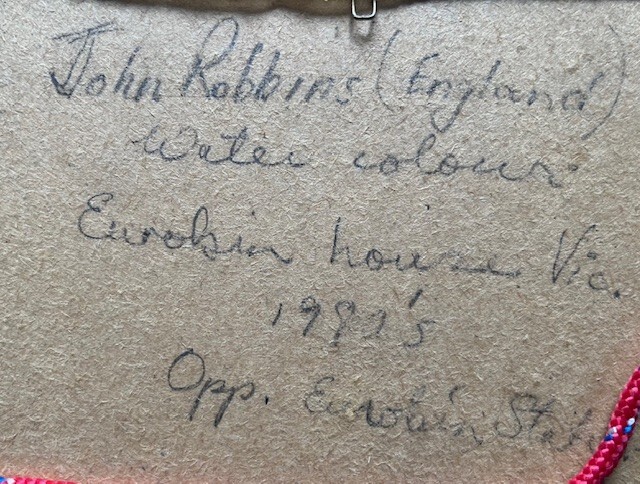 John Robbins (England)
Water colour
Eurobin house Vic.
1980's
Opp. Eurobin